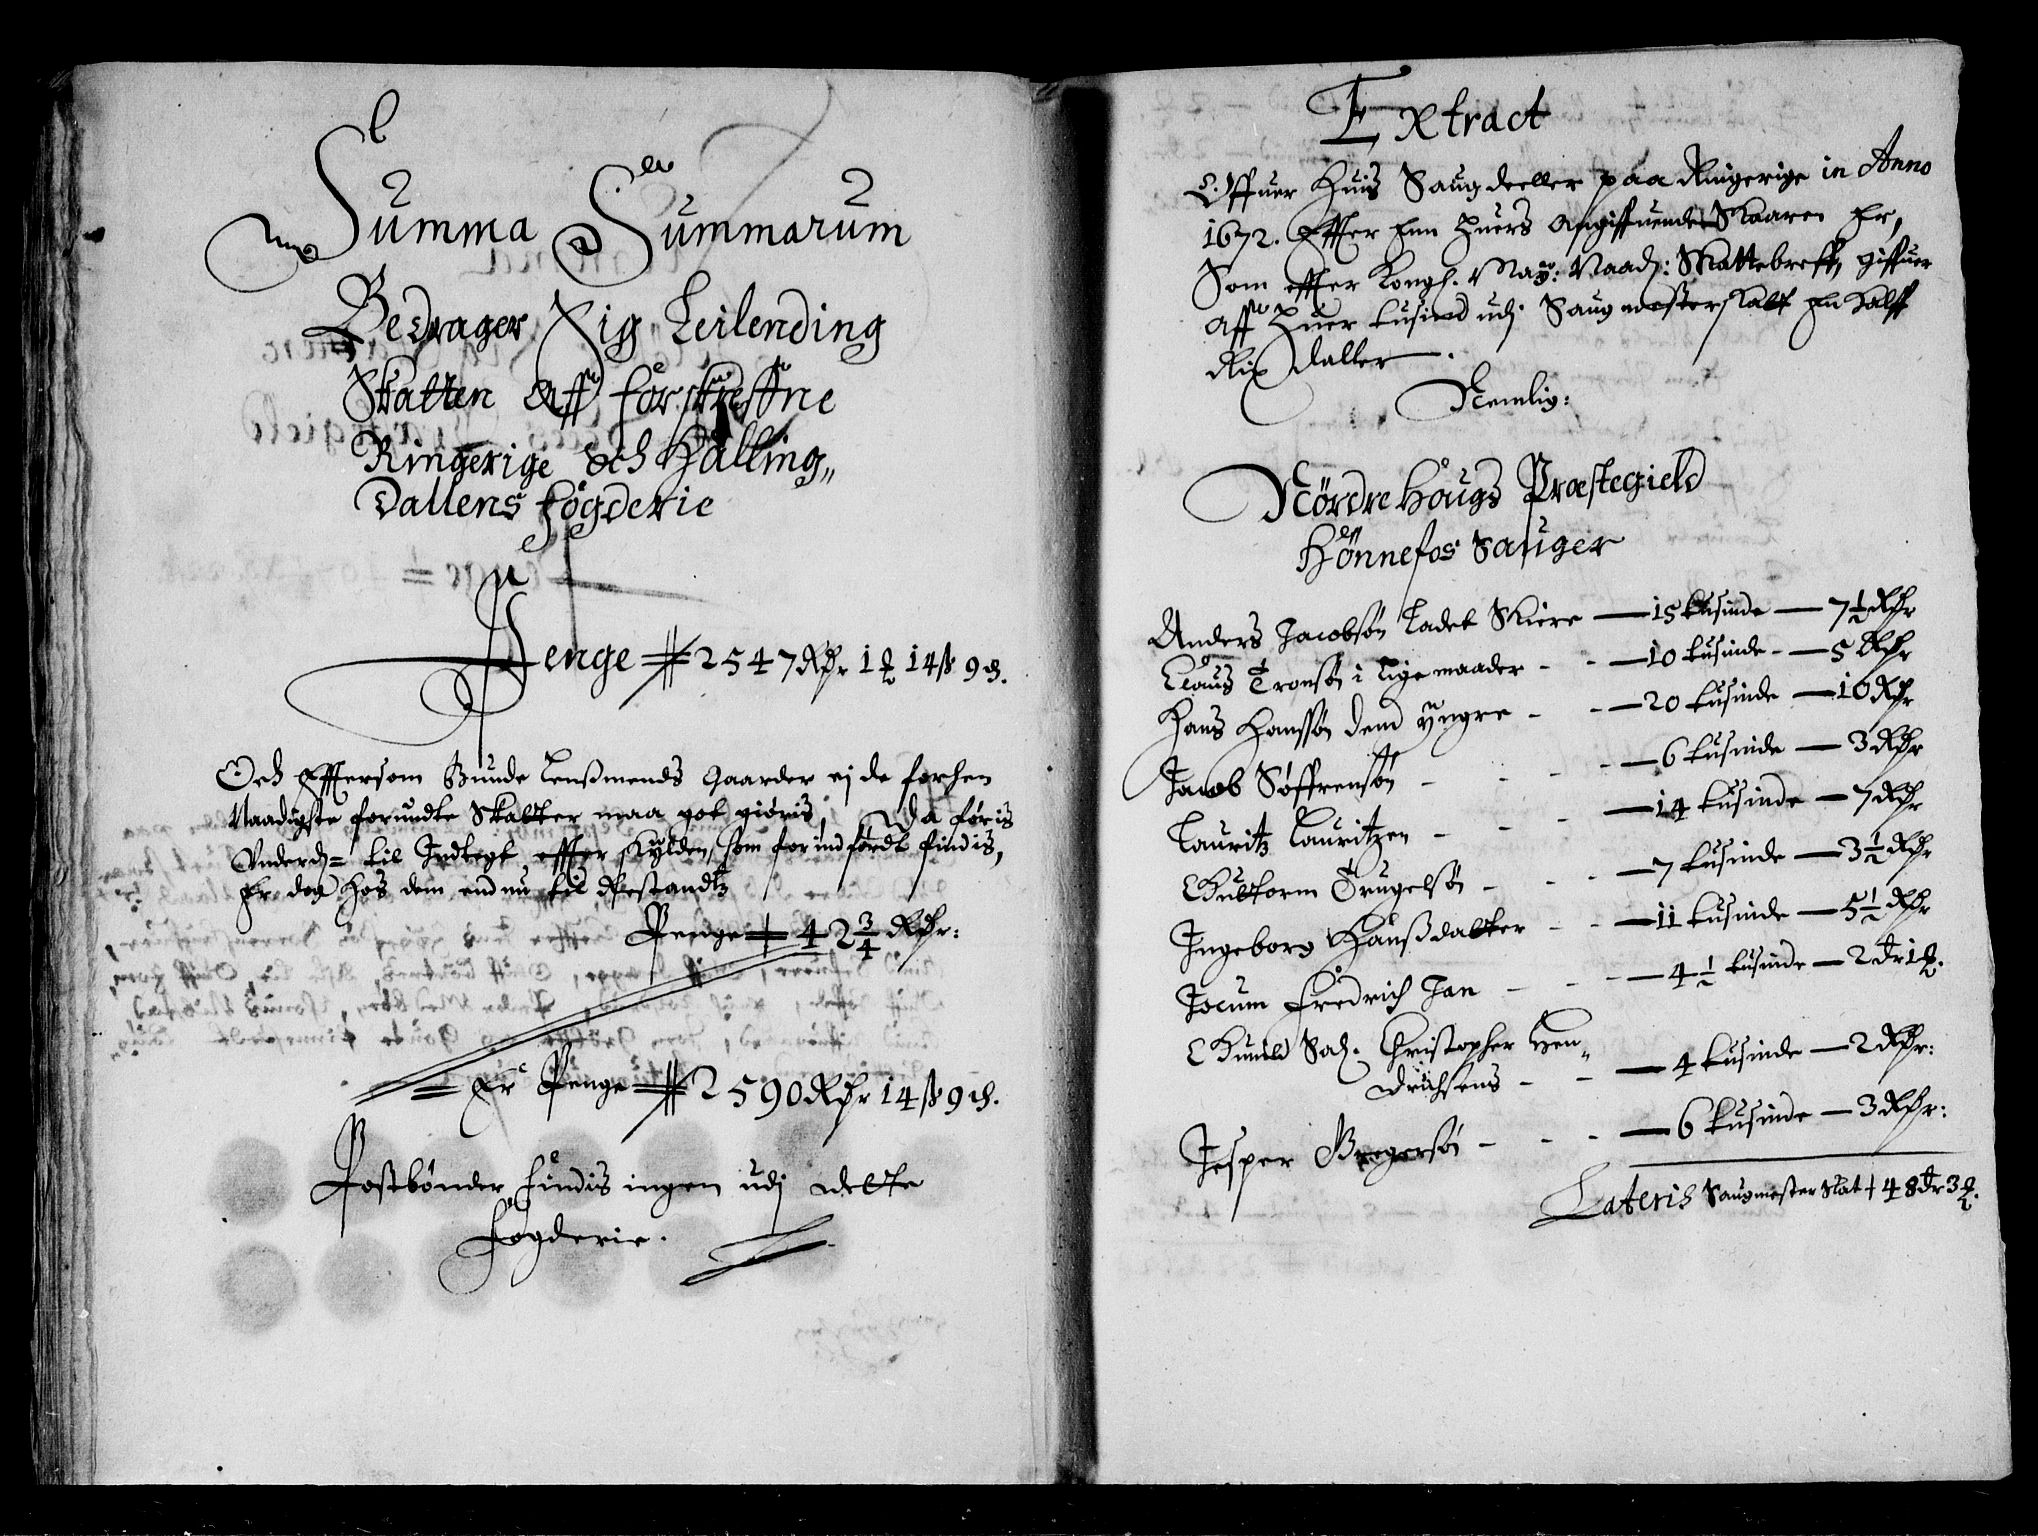 Summa Summarum
Bedrager Sig Leilending
Skatten Aff forskreffne
Ringerige och Halling„
Dallens fögderie
Penge 2547 Rdr 1 ß 14 ß 9 ch.
Och Effttersom Bunde Lenßmends Gaarder ej de forhen
Naadigste forundte Skatter maa got giöris, da föris
Underd= til Indtegt effter Skylden, som for indfördt findis,
Er dog hos dem endnu til Restandtz
Penge 42 3/4 Rdr:
= Er Penge 2590 Rdr 14 ß 9 ch.
Postbönder findis ingen udj dette
Fögderie.
Extract
Offuer Huis Saugdeeller paa Ringerige in Anno
1672. Effter Enn Huers Angiffuende Skaaren Er,
Som effter Kongl. May: Naad: Skattebreff, giffuer
Aff Huer tusind udj Saugmesterskatt En Halff
Rix daller.
Nemlig:
Nördrehougs Præstegield
Hönnefos Sauger
Anders Jacobsön Ladet Skiere — 15 tusinde — 7½ Rdr
Claus Tronsön i lige maader - - — 10 tusinde - — 5 Rdr
Hans Hanssön dend yngre - - — 20 tusinde — 10 Rdr
Jacob Söffrensön - - - — 6 tusinde — 3 Rdr
Lauritz Lauritzen - - - — 14 tusinde — 7 Rdr
Guttorm Trugelsön - - - — 7 tusinde — 3½ Rdr
Ingeborg Hanßdatter - - — 11 tusinde — 5½ Rdr
Jocum Fredrich Jan - - - — 4½ tusinde — 2 dr 1 ß.
Gunild Sal. Christopher Hen„
drichsens - - — 4 tusinde — 2 Rdr:
Jesper Gregersön - - - — 6 tusinde — 3 Rdr:
Lateris Saugmester Skat 48 dr 3 ß.